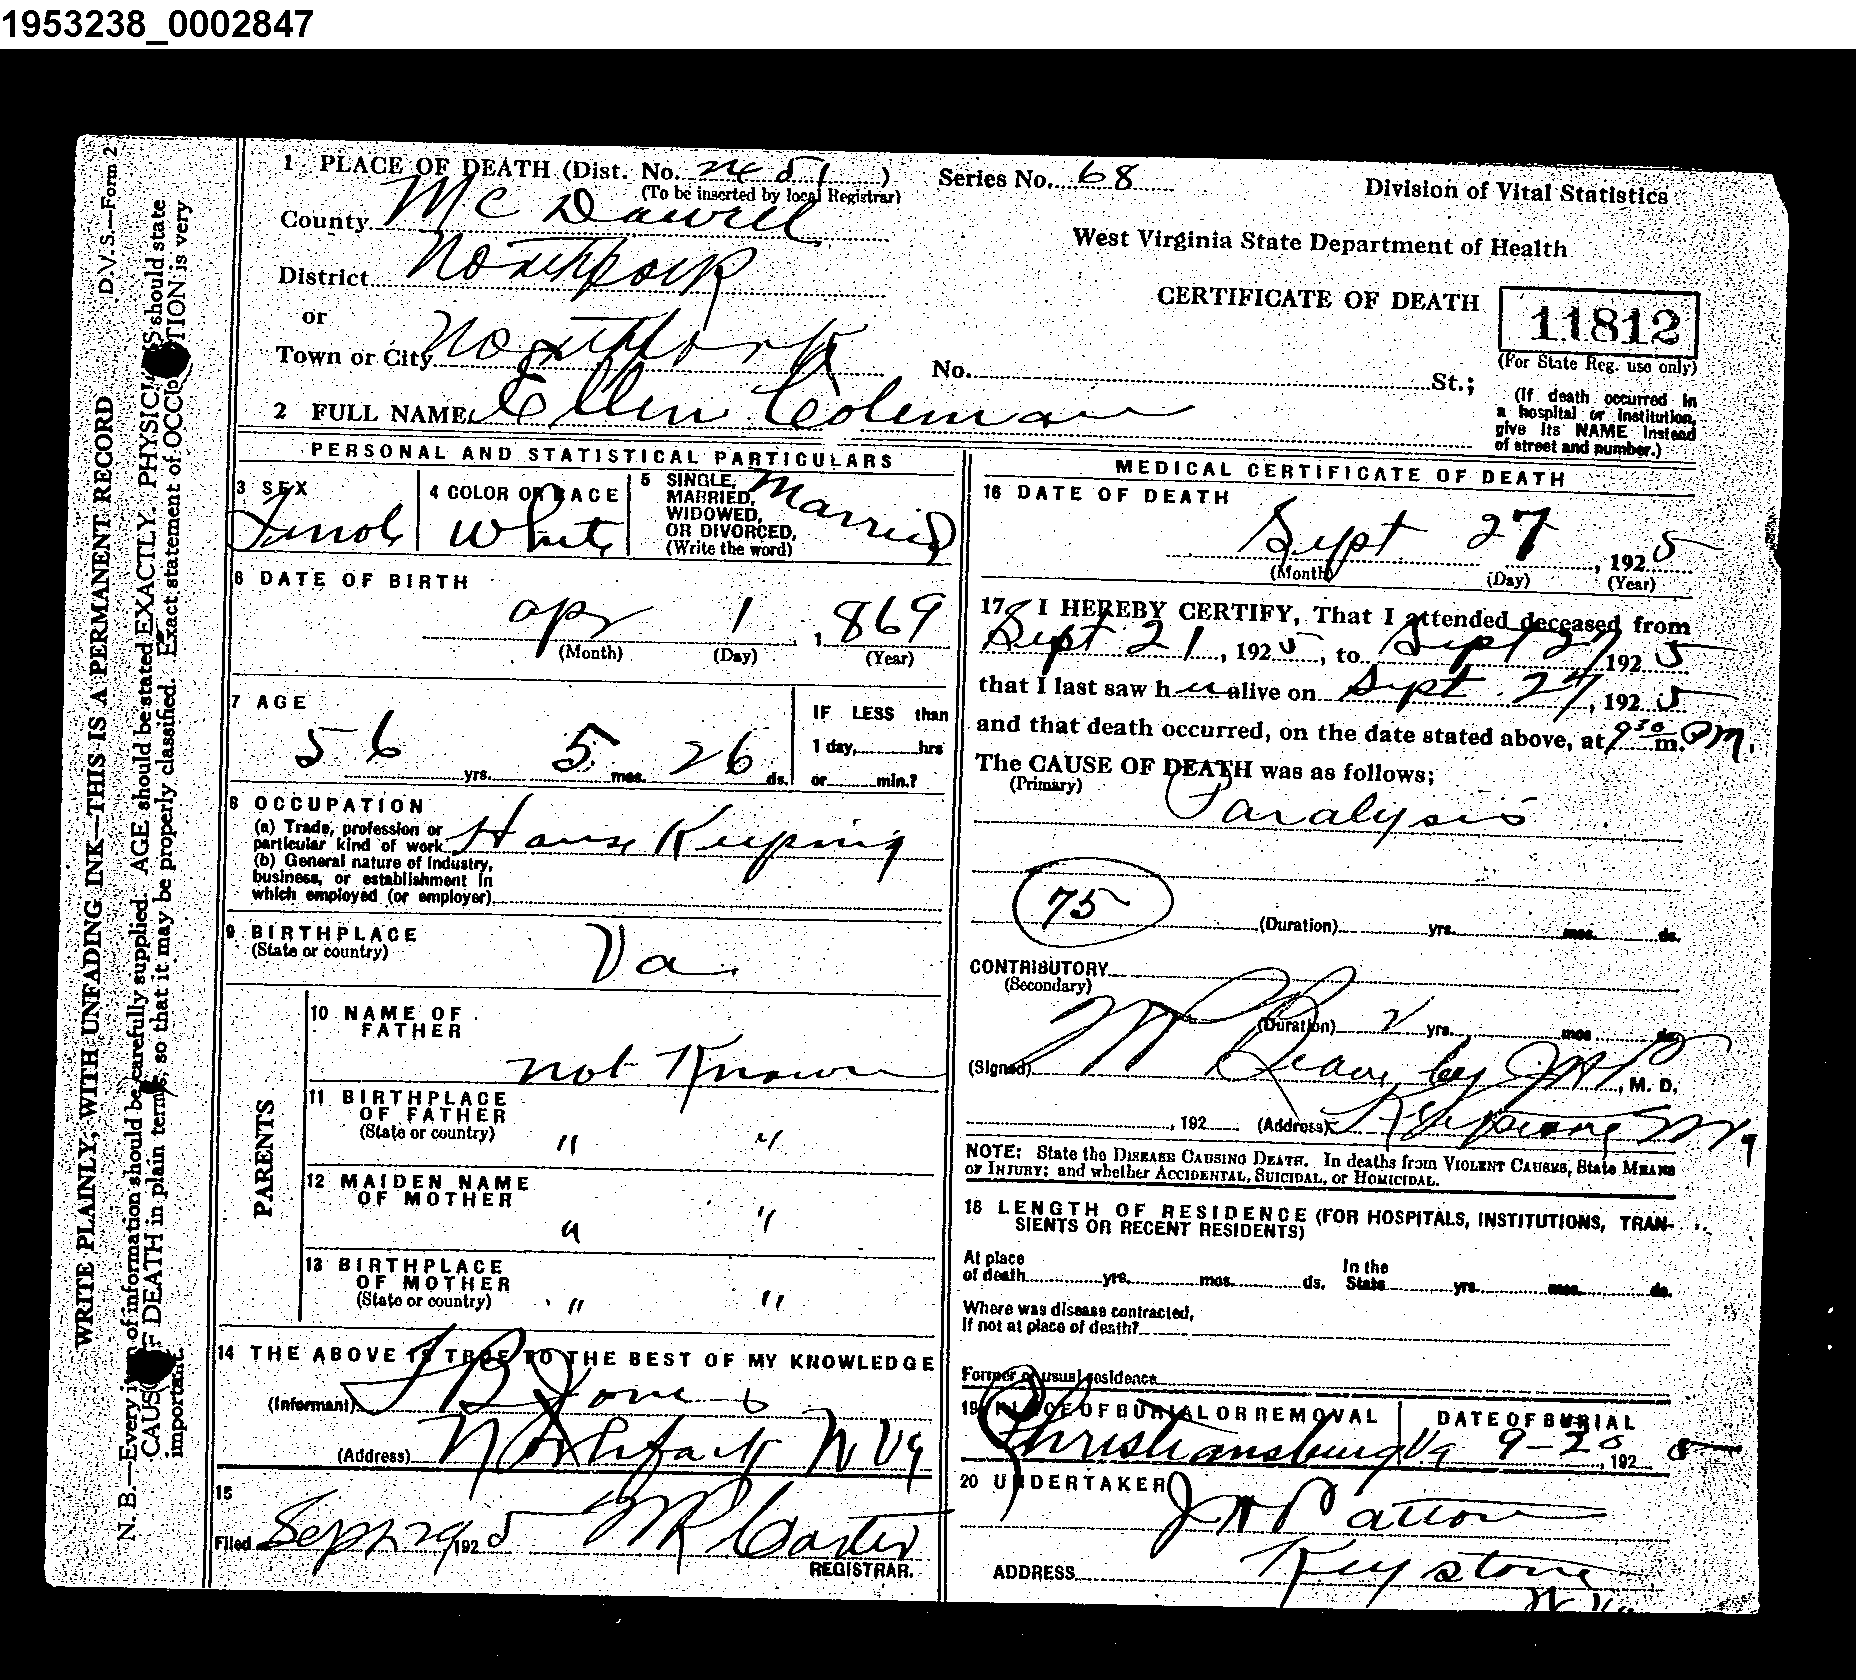 1953238_0002847
D.V.S.—Form 2
WRITE PLAINLY, WITH UNFADING INK—THIS IS A PERMANENT RECORD
N. B.—Every of information should be carefully supplied. AGE should be stated EXACTLY. PHYSICI S should state
CAUS F DEATH in plain terms, so that it may be properly classified. Exact statement of OCCU TION is very
important.
1 PLACE OF DEATH (Dist. No. 51)
(To be inserted by local Registrar)
Series No. 68
Division of Vital Statistics
County McDowell
West Virginia State Department of Health
District Northfork
CERTIFICATE OF DEATH
11812
(For State Reg. use only)
or
Town or City Northfork
No. St.;
(If death occurred in
a hospital or institution,
give its NAME instead
of street and number.)
2 FULL NAME Ellen Coleman
PERSONAL AND STATISTICAL PARTICULARS
3 SEX
Female
4 COLOR OR RACE
White
5 SINGLE,
MARRIED,
WIDOWED,
OR DIVORCED,
(Write the word)
Married
6 DATE OF BIRTH
Apr 1, 1869
(Month) (Day) (Year)
7 AGE
56 yrs. 5 mos. 26 ds.
IF LESS than
1 day, hrs
or min.?
8 OCCUPATION
(a) Trade, profession or
particular kind of work House Keeping
(b) General nature of Industry,
business, or establishment in
which employed (or employer)
9 BIRTHPLACE
(State or country)
Va.
PARENTS
10 NAME OF
FATHER
not Known
11 BIRTHPLACE
OF FATHER
(State or country) " "
12 MAIDEN NAME
OF MOTHER
" "
13 BIRTHPLACE
OF MOTHER
(State or country) " "
14 THE ABOVE IS TRUE TO THE BEST OF MY KNOWLEDGE
(Informant) J B Jones
(Address) Northfork W Va
15
Filed Sept 29 1925 M R Carter
REGISTRAR.
MEDICAL CERTIFICATE OF DEATH
16 DATE OF DEATH
Sept 27, 1925
(Month) (Day) (Year)
17 I HEREBY CERTIFY, That I attended deceased from
Sept 21, 1925, to Sept 27, 1925
that I last saw her alive on Sept 27, 1925
and that death occurred, on the date stated above, at 9 30 m. P M.
The CAUSE OF DEATH was as follows;
(Primary)
Paralysis
75
(Duration) yrs. mos. ds.
CONTRIBUTORY
(Secondary)
(Duration) yrs. mos. ds.
(Signed) by J H P, M. D.
, 192 (Address) Keystone W Va
NOTE: State the DISEASE CAUSING DEATH. In deaths from VIOLENT CAUSES, State MEANS
OF INJURY; and whether ACCIDENTAL, SUICIDAL, or HOMICIDAL.
18 LENGTH OF RESIDENCE (FOR HOSPITALS, INSTITUTIONS, TRAN-
SIENTS OR RECENT RESIDENTS)
At place
of death yrs. mos. ds.
In the
State yrs. mos. ds.
Where was disease contracted,
If not at place of death?
Former or usual residence
19 PLACE OF BURIAL OR REMOVAL
Christiansburg Va
DATE OF BURIAL
9-28, 1925
20 UNDERTAKER
J H Patton
ADDRESS Keystone
W Va